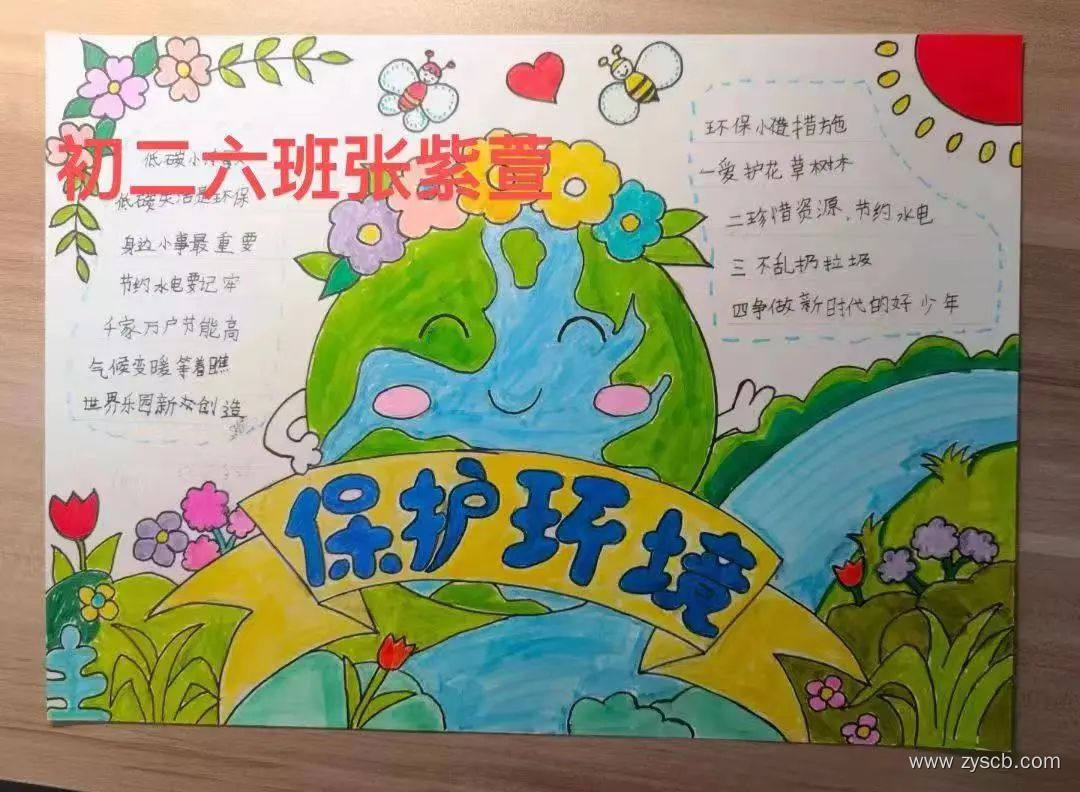 初二六班张紫萱
低碳小
低碳生活是环保
身边小事最重要
节约水电要记牢
千家万户节能高
气候变暖等着瞧
世界乐园新创造
环保小措施
一爱护花草树木
二珍惜资源，节约水电
三不乱扔垃圾
四争做新时代的好少年
保护环境
www.zyscb.com